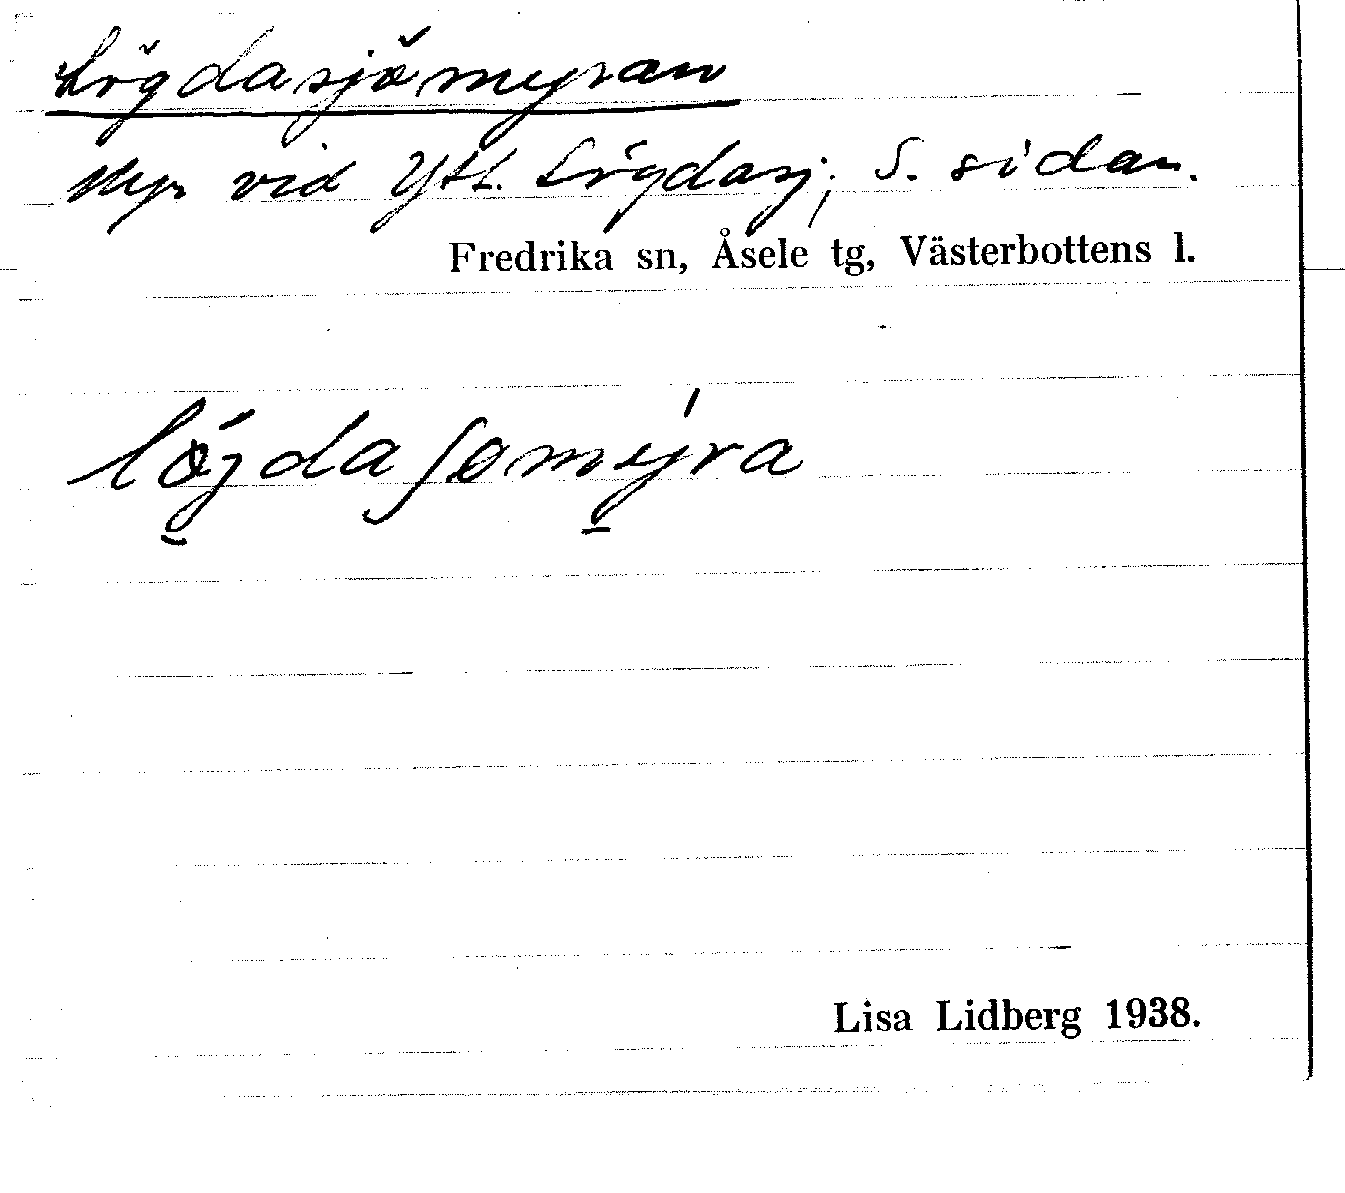 Lögdasjömyran
Myr vid Ytt. Lögdasj; S. sidan.
Fredrika sn, Åsele tg, Västerbottens l.
lögdaʃømýra
Lisa Lidberg 1938.